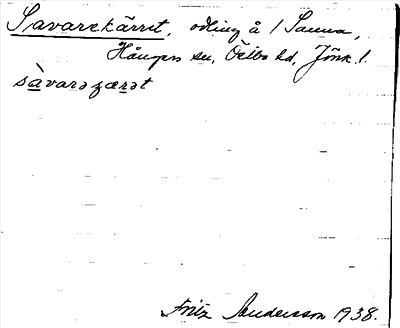 Savarekärret, odling å 1 Sanna,
Hångers sn, Östbo hd, Jönk. l.
sàvarəȥærət
Fritz Andersson 1938.